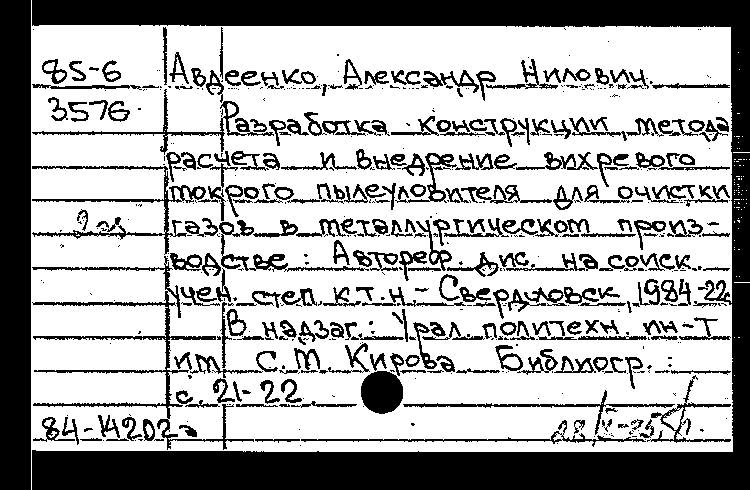 85-6 Авдеенко, Александр Нилович.
3576 Разработка конструкции, метода
расчета и внедрение вихревого
мокрого пылеуловителя для очистки
2 эк газов в металлургическом произ-
водстве: Автореф. дис. на соиск.
учен. степ к.т.н. - Свердловск, 1984-22
В надзаг.: Урал. политехн. ин-т
им С.М. Кирова. Библиогр.:
с. 21-22.
84-14202